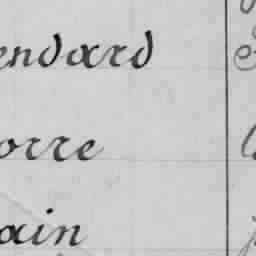 endard
orre
ain